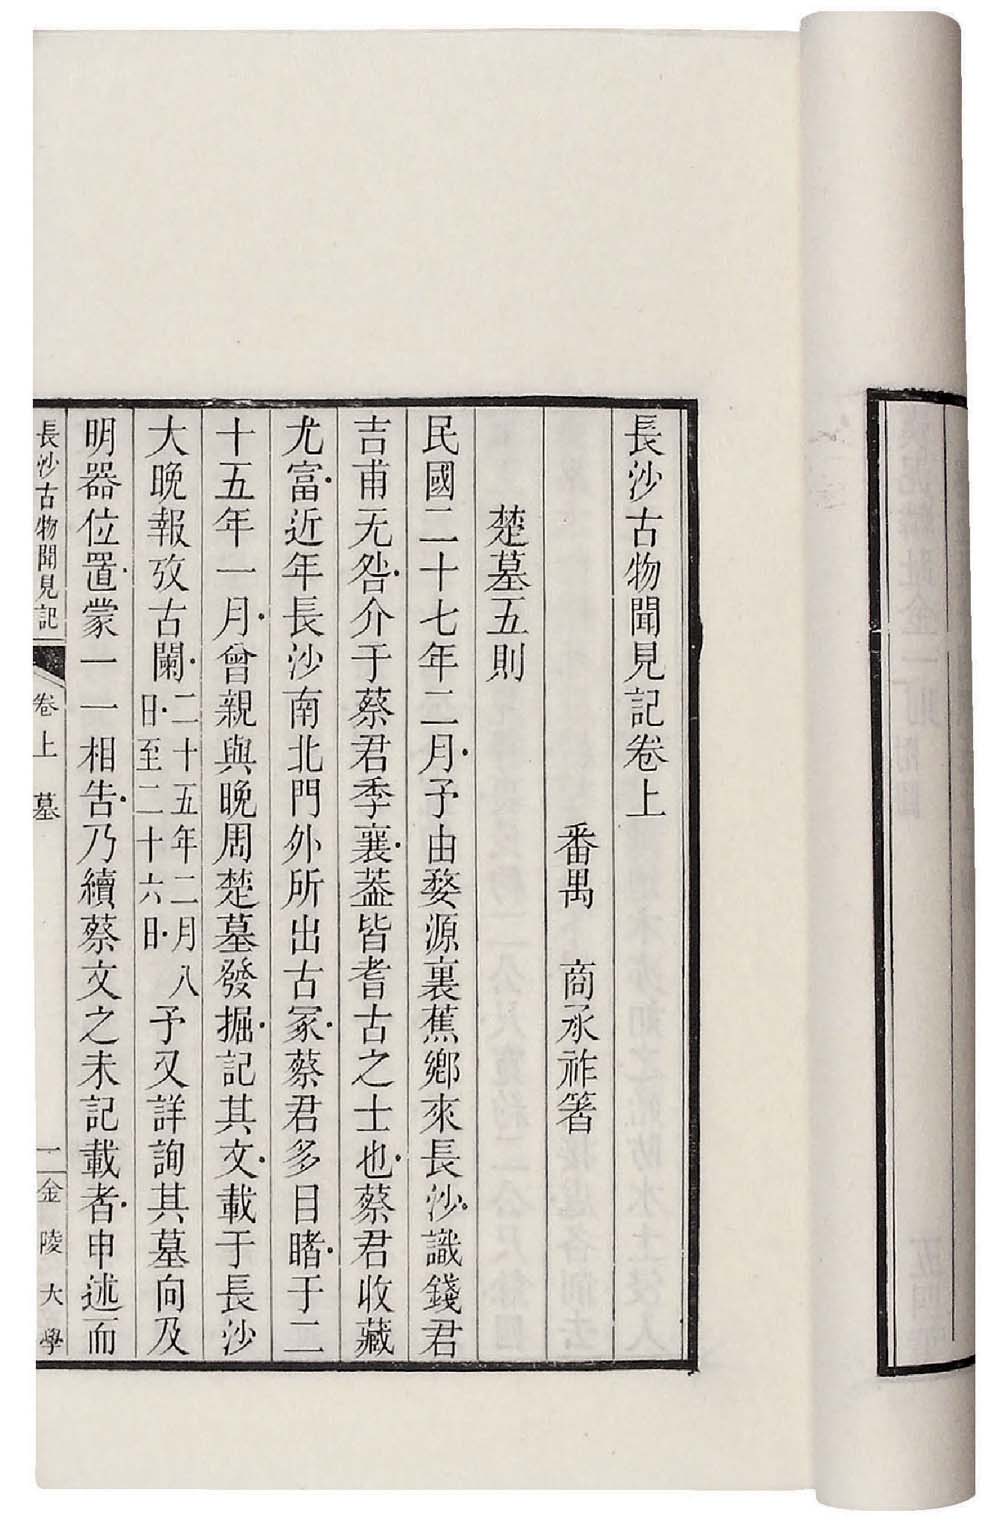 長沙古物聞見記卷上
番禺　商承祚箸
楚墓五則
民國二十七年二月予由婺源裏蕉鄉來長沙識錢君
吉甫无咎介于蔡君季襄葢皆耆古之士也蔡君收藏
尤富近年長沙南北門外所出古冢蔡君多目睹于二
十五年一月曾親與晚周楚墓發掘記其文載于長沙
大晚報攷古闌二十五年二月八日至二十六日予又詳詢其墓向及
明器位置蒙一一相告乃續蔡文之未記載者申述而
長沙古物聞見記　卷上　墓　一　金陵大學